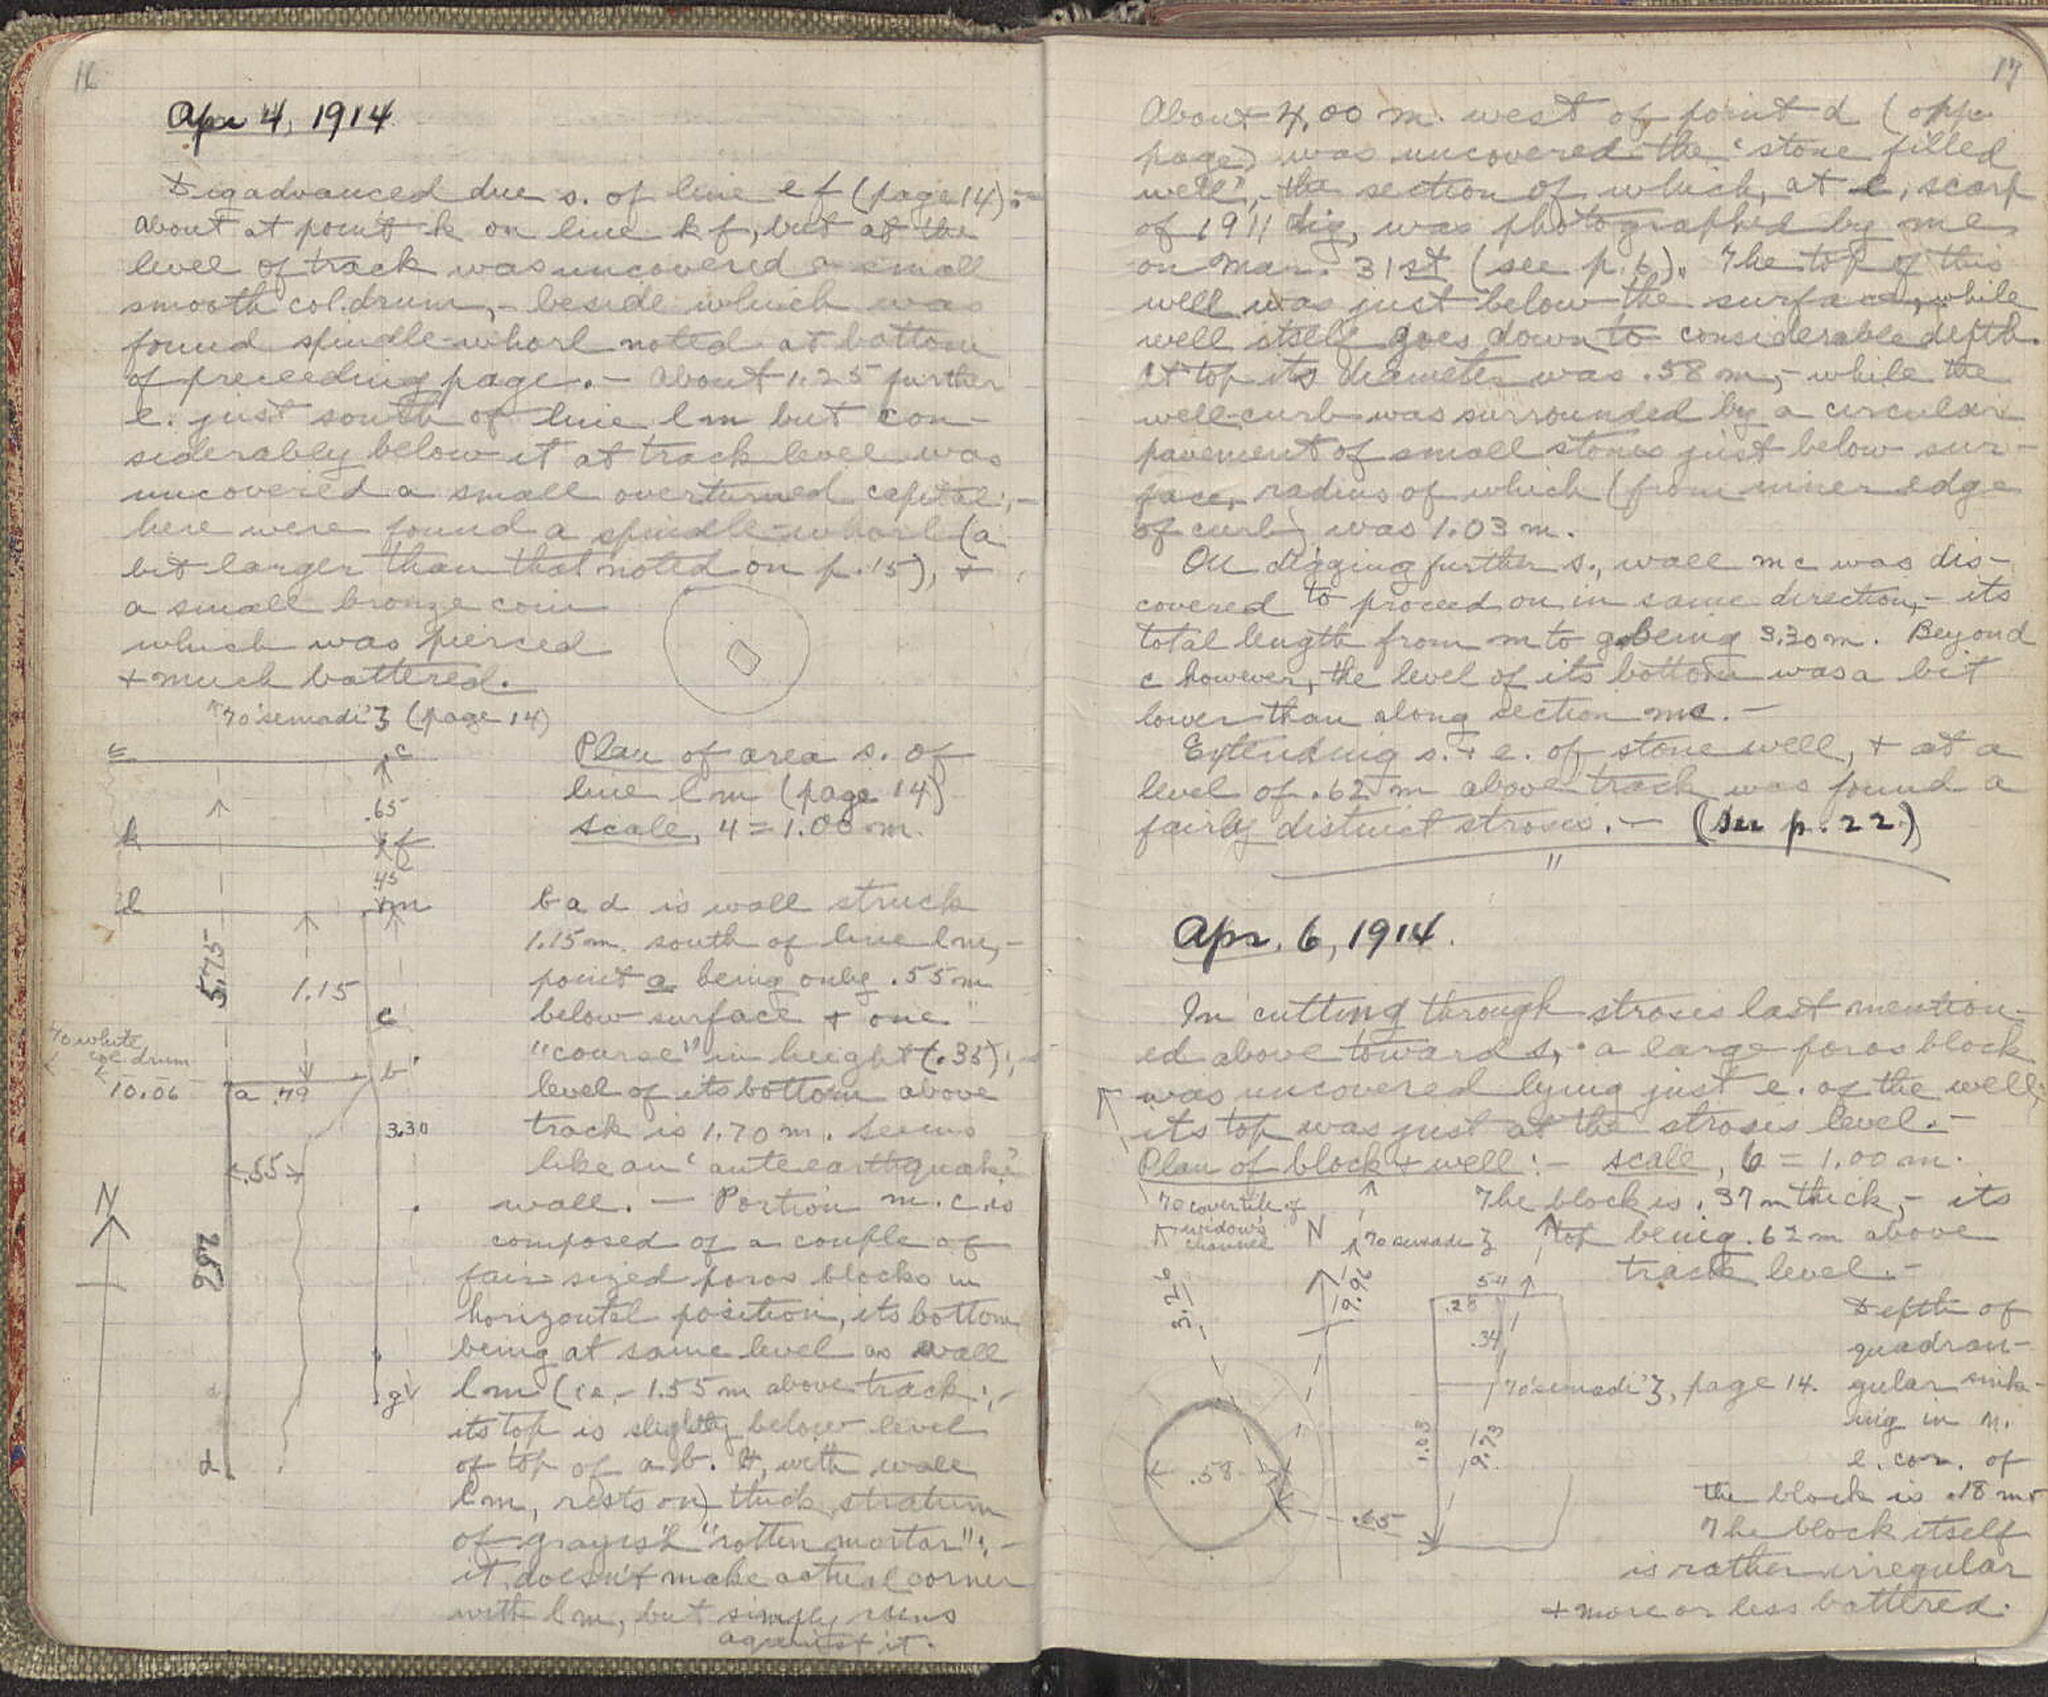 16
Apr 4, 1914
Dig advanced due s. of line e f (page 14):-
about at point k on line k f, but at the
level of track was uncovered a small
smooth col. drum, - beside which was
found spindle-whorl noted at bottom
of preceeding page. - About 1.25 further
e. just south of line l m but con-
siderably below it at track level was
uncovered a small overturned capital; -
here were found a spindle-whorl (a
bit larger than that noted on p. 15), +
a small bronze coin
which was pierced
+ much battered.
To 'semadi' 3 (page 14)
Plan of area s. of
line l m (page 14)
scale, 4 = 1.00 m.
e
c
.65
k
f
.45
l
m
5.75
1.15
c
To white
col drum
10.06
b
a .79
3.30
.55
N
2.56
g
d
b a d is wall struck
1.15 m. south of line l m, -
point a being only .55 m
below surface + one
"course" in height (.35); -
level of its bottom above
track is 1.70 m. Seems
like an 'ante earthquake'
wall. - Portion m. c. is
composed of a couple of
fair sized poros blocks in
horizontal position, its bottom
being at same level as wall
l m (i.e. - 1.55 m above track; -
its top is slightly below level
of top of a b. It, with wall
l m, rests on thick stratum
of grayish "rotten mortar"; -
it doesn't make actual corner
with l m, but simply runs
against it.
17
About 4.00 m. west of point d (opp.
page) was uncovered the 'stone filled
well', - the section of which, at e. scarp
of 1911 dig, was photographed by me
on Mar. 31st (see p. 6). The top of this
well was just below the surface, while
well itself goes down to considerable depth.
At top its diameter was .58 m, - while the
well-curb was surrounded by a circular
pavement of small stones just below sur-
face, radius of which (from inner edge
of curb) was 1.03 m.
On digging further s., wall m c was dis-
covered to proceed on in same direction, - its
total length from m to g being 3.30 m. Beyond
c however, the level of its bottom was a bit
lower than along section mc. -
Extending s. + e. of stone well, + at a
level of .62 m above track was found a
fairly distinct strosis. - (see p. 22)
"
Apr. 6, 1914.
In cutting through strosis last mention-
ed above toward s, - a large poros block
was uncovered lying just e. of the well;
its top was just at the strosis level. -
Plan of block + well: - scale, 6 = 1.00 m.
To cover tile of
widow's
channel
N
To semadi 3
The block is .37 m thick, - its
top being .62 m above
track level. -
3.76
9.96
.54
.28
.34
To 'semadi' 3, page 14.
1.03
9.73
.58
.65
Depth of
quadran-
gular sink-
ing in n.
e. cor. of
the block is .18 m.
The block itself
is rather irregular
+ more or less battered.